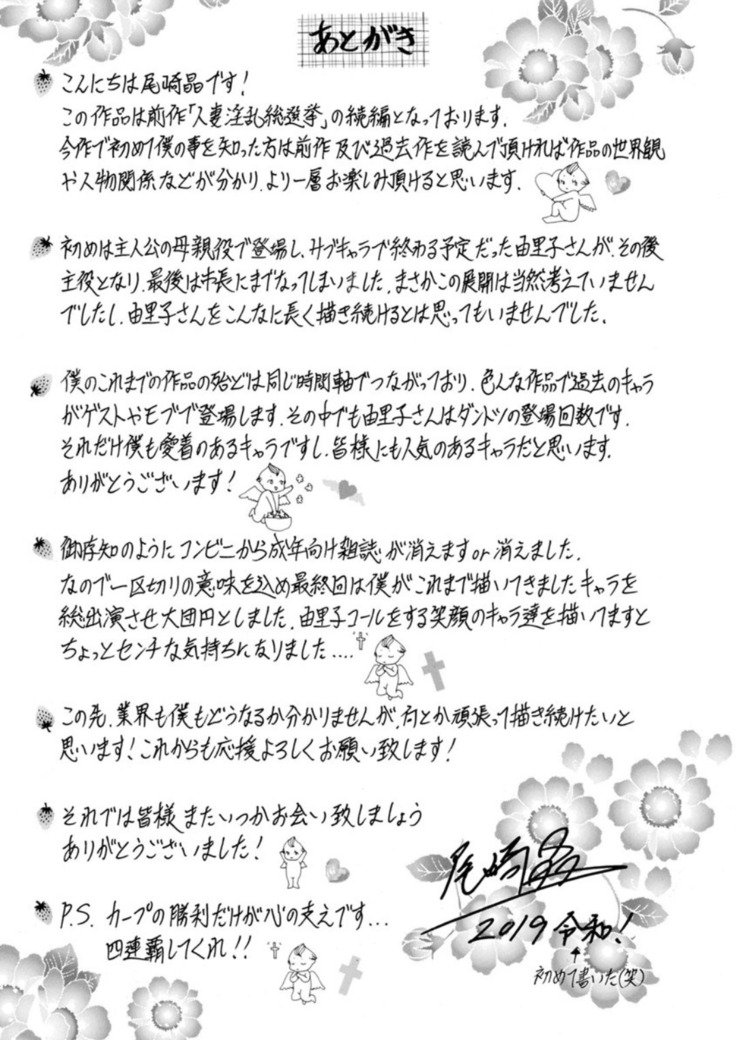 あとがき
こんにちは尾崎晶です!
この作品は前作「人妻淫乱総選挙」の続編となっております.
今作で初めて僕の事を知った方は前作及び過去作を読んで頂ければ作品の世界観
や人物関係などが分かり.より一層お楽しみ頂けると思います.
初めは主人公の母親役で登場し、サブキャラで終わる予定だった由里子さんが.その後
主役となり.最後は市長にまでなってしまいました.まさかこの展開は当然考えていません
でしたし.由里子さんをこんなに長く描き続けるとは思ってもいませんでした.
僕のこれまでの作品の殆どは同じ時間軸でつながっており.色んな作品で過去のキャラ
がゲストやモブで登場します.その中でも由里子さんはダントツの登場回数です.
それだけ僕も愛着のあるキャラですし.皆様にも人気のあるキャラだと思います.
ありがとうございます!
御存知のようにコンビニから成年向け雑誌が消えますor消えました.
なので一区切りの意味を込め最終回は僕がこれまで描いてきましたキャラを
総出演させ大団円としました.由里子コールをする笑顔のキャラ達を描いてますと
ちょっとセンチな気持ちになりました....
この先.業界も僕もどうなるか分かりませんが.何とか頑張って描き続けたいと
思います!これからも応援よろしくお願い致します!
それでは皆様またいつかお会い致しましょう
ありがとうございました!
P.S. カープの勝利だけが心の支えです...
四連覇してくれ!!
尾崎晶
2019 令和!
初めて書いた(笑)